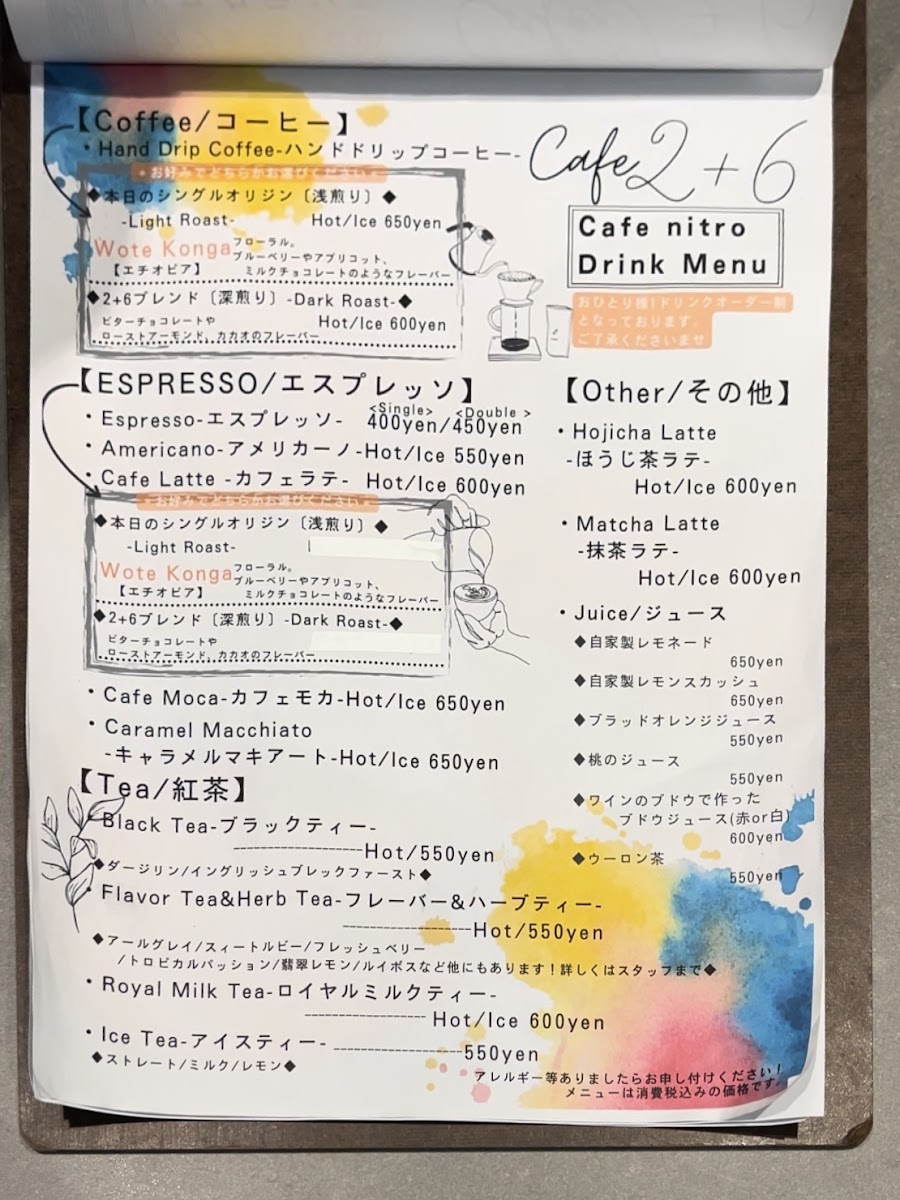 【Coffee/コーヒー】
・Hand Drip Coffee-ハンドドリップコーヒー-
・お好みでどちらかお選びください・
◆本日のシングルオリジン〔浅煎り〕◆
-Light Roast- Hot/Ice 650yen
Wote Konga
【エチオピア】
フローラル。
ブルーベリーやアプリコット、
ミルクチョコレートのようなフレーバー
◆2+6ブレンド〔深煎り〕-Dark Roast-◆
ビターチョコレートや Hot/Ice 600yen
ローストアーモンド、カカオのフレーバー
Cafe 2+6
Cafe nitro
Drink Menu
おひとり様1ドリンクオーダー制
となっております。
ご了承くださいませ
【ESPRESSO/エスプレッソ】
<Single> <Double >
・Espresso-エスプレッソ- 400yen/450yen
・Americano-アメリカーノ-Hot/Ice 550yen
・Cafe Latte -カフェラテ- Hot/Ice 600yen
・お好みでどちらかお選びください・
◆本日のシングルオリジン〔浅煎り〕◆
-Light Roast-
Wote Konga
【エチオピア】
フローラル。
ブルーベリーやアプリコット、
ミルクチョコレートのようなフレーバー
◆2+6ブレンド〔深煎り〕-Dark Roast-◆
ビターチョコレートや
ローストアーモンド、カカオのフレーバー
・Cafe Moca-カフェモカ-Hot/Ice 650yen
・Caramel Macchiato
-キャラメルマキアート-Hot/Ice 650yen
【Tea/紅茶】
・Black Tea-ブラックティー-
--------------------Hot/550yen
◆ダージリン/イングリッシュブレックファースト◆
・Flavor Tea&Herb Tea-フレーバー&ハーブティー-
--------------------Hot/550yen
◆アールグレイ/スィートルビー/フレッシュベリー
/トロピカルパッション/翡翠レモン/ルイボスなど他にもあります！詳しくはスタッフまで◆
・Royal Milk Tea-ロイヤルミルクティー-
------------------- Hot/Ice 600yen
・Ice Tea-アイスティー- --------------------550yen
◆ストレート/ミルク/レモン◆
【Other/その他】
・Hojicha Latte
-ほうじ茶ラテ-
Hot/Ice 600yen
・Matcha Latte
-抹茶ラテ-
Hot/Ice 600yen
・Juice/ジュース
◆自家製レモネード
650yen
◆自家製レモンスカッシュ
650yen
◆ブラッドオレンジジュース
550yen
◆桃のジュース
550yen
◆ワインのブドウで作った
ブドウジュース(赤or白)
600yen
◆ウーロン茶
550yen
アレルギー等ありましたらお申し付けください！
メニューは消費税込みの価格です。